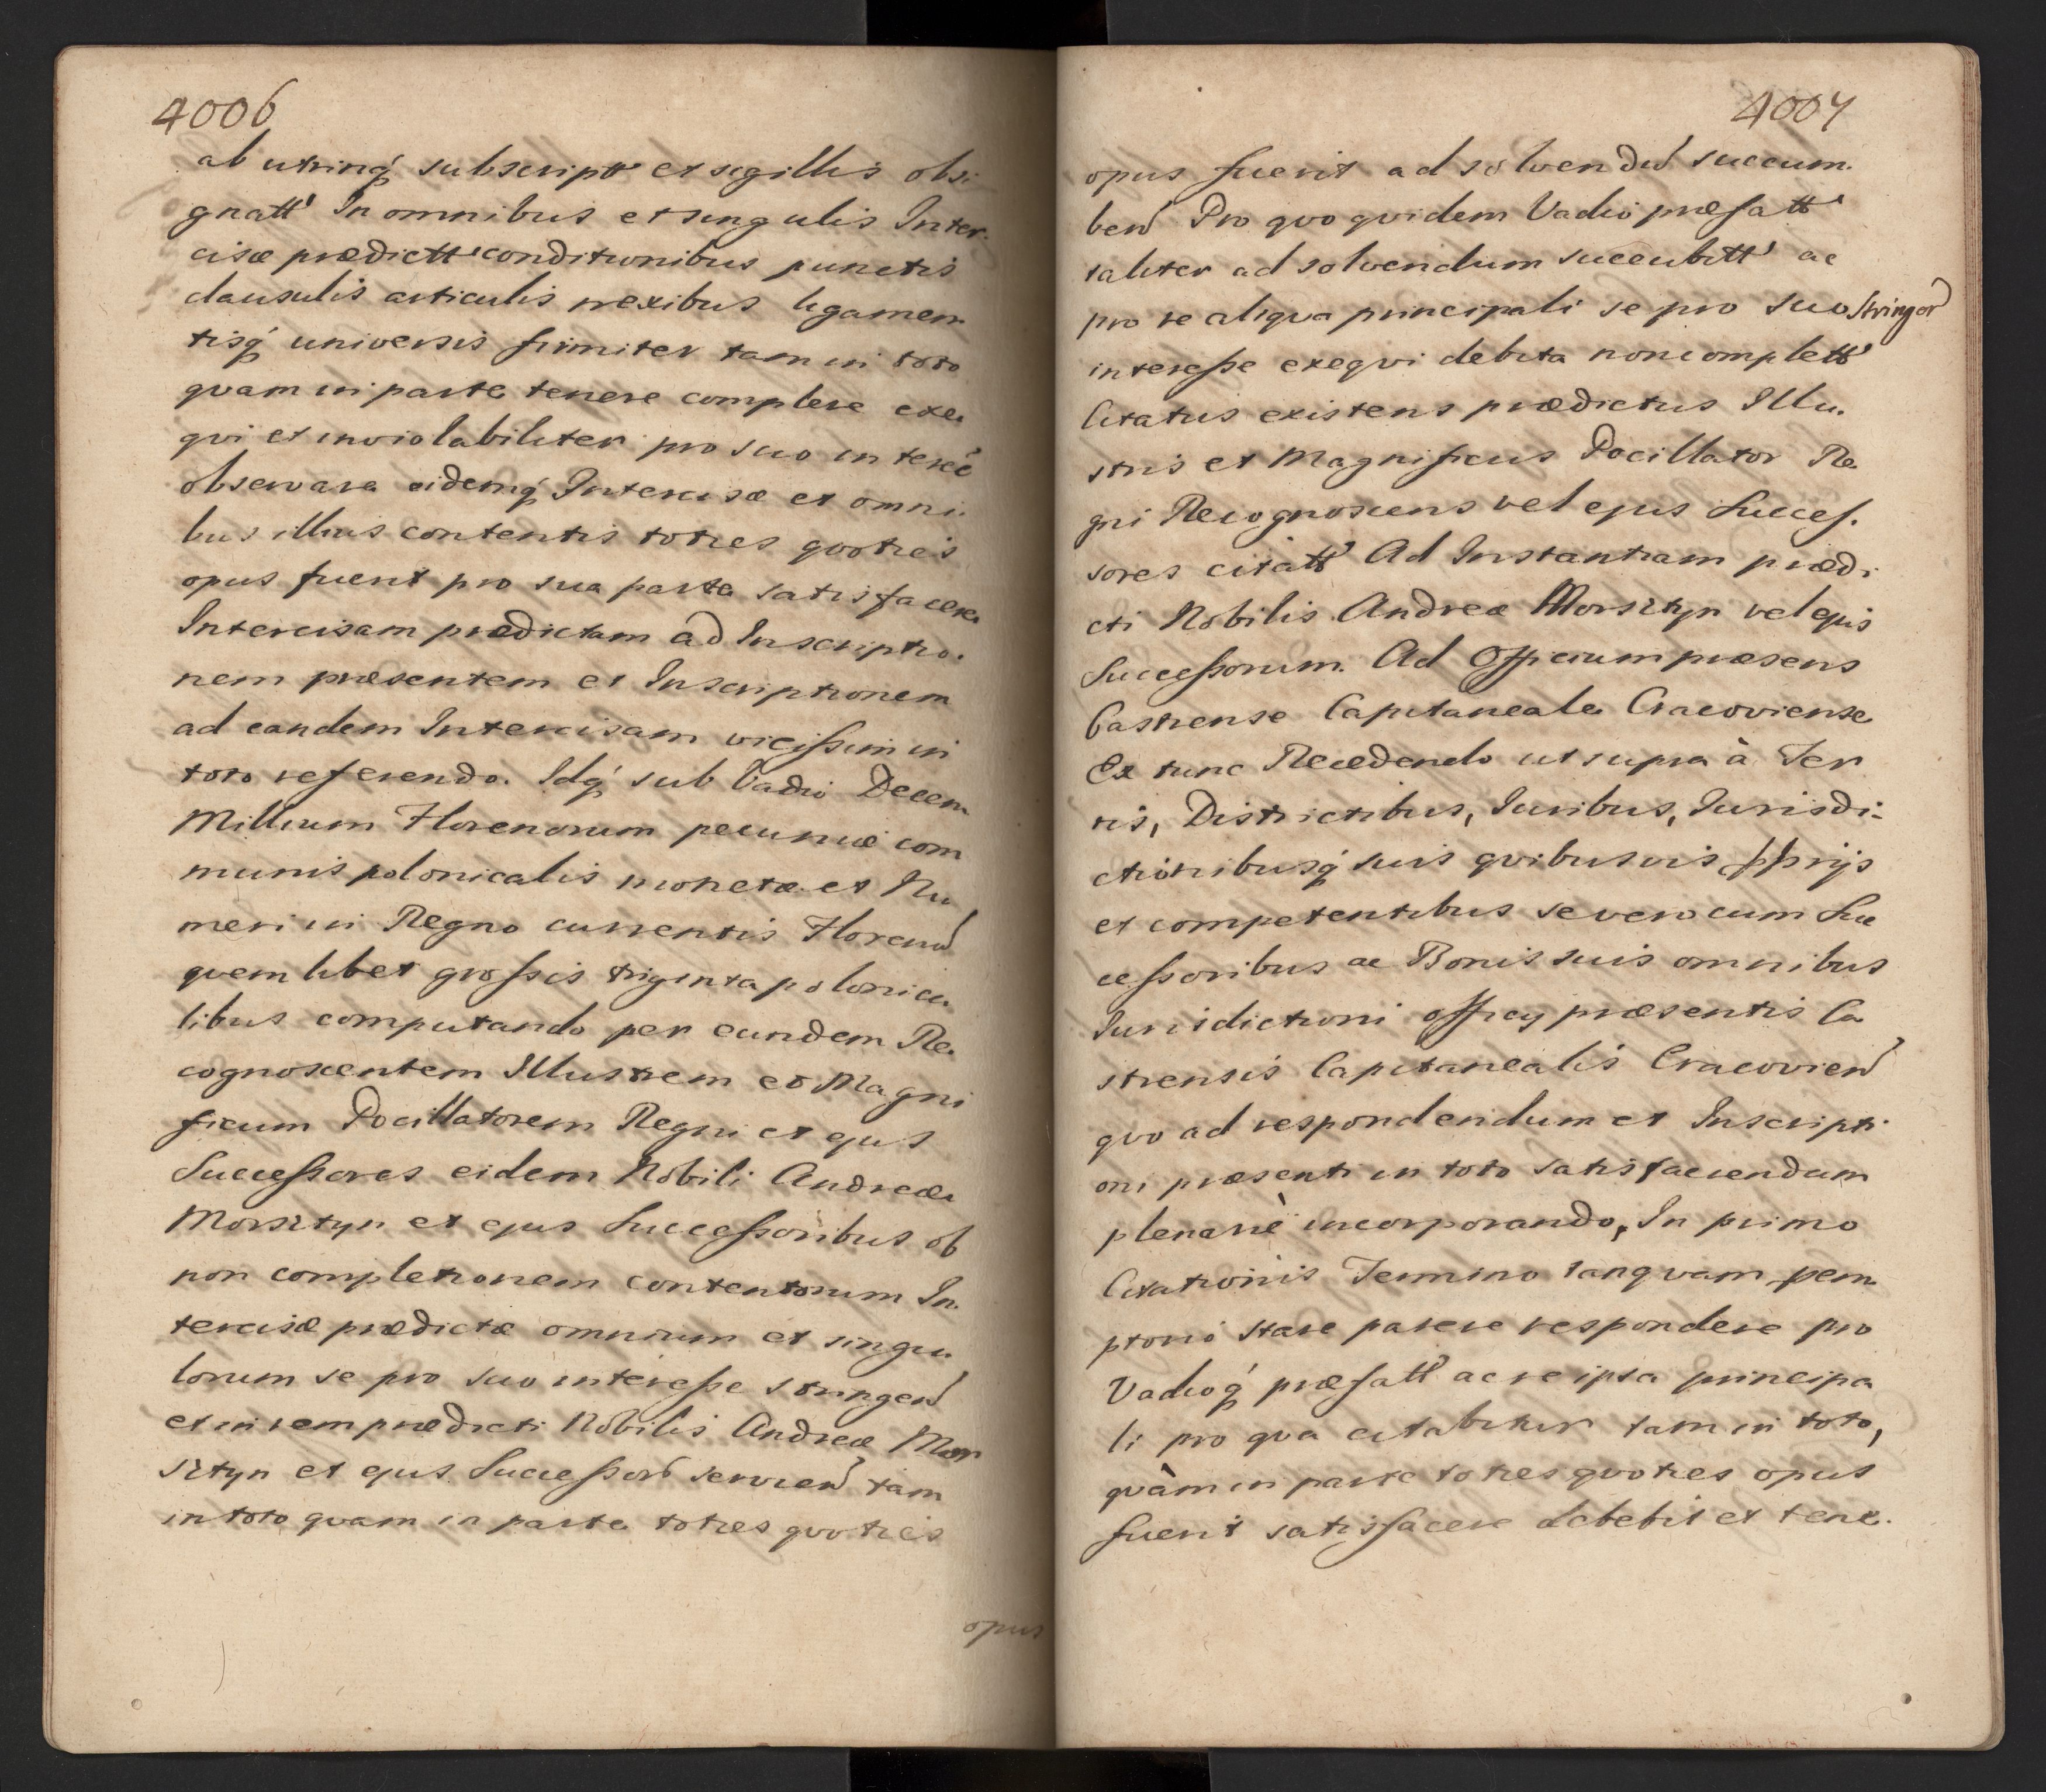 4006
ab utrinq́ subscriptt et sigillis obsi
gnatt' In omnibus et singulis Inter.
cisæ prædictt' conditionibus punctis
clausulis articulis nexibus ligamen
tisq́ universis firmiter tam in toto
qvam in parte tenere complere exe
qvi et inviolabiliter pro suo interẽe
observare eidemq́ Intercisæ et omni.
bus illius contentis toties qvoties
opus fuerit pro sua parte satisfacere
Intercisam prædictam ad Inscriptio.
nem præsentem et Inscriptionem
ad eandem Intercisam vicissim in
toto referendo. Idq́ sub Vadio Decem
Millium Florenorum pecuniæ com
munis polonicalis monetæ et Nu
meri in Regno currentis Florenũ
qvemlibet grossis triginta polonica
libus computando per eundem Re.
cognoscentem Illustrem et Magni
ficum Pocillatorem Regni et ejus
Successores eidem Nobili Andreæ
Morsztyn et ejus Successoribus ob
non completionem contentorum In.
tercisæ prædictæ omnium et singu
lorum se pro suo interesse stringeñ
et in rem prædicti Nobilis Andreæ Mor
sztyn et ejus Successorũ servieñ tam
in toto qvam in parte toties qvoties
opus
4007
opus fuerit ad solvendũ succum.
beñ Pro qvo qvidem Vadio præfatt'
taliter ad solvendum succubitt' ac
pro re aliqva principali se pro suo stringeñ
interesse exeqvi debita non complett'
Citatus existens prædictus Illu.
stris et Magnificus Pocillator Re
gni Recognoscens vel ejus Succes.
sores citatt' Ad Instantiam prædi
cti Nobilis Andreæ Morsztyn vel ejus
Successorum. Ad Officium præsens
Castrense Capitaneale Cracoviense
Ex tunc Recedendo ut supra à Ter
ris, Districtibus, Juribus, Jurisdi-
ctionibusq́ suis qvibusvis ppriis
et competentibus se vero cum Suc
cessoribus ac Bonis suis omnibus
Jurisdictioni officij præsentis Ca
strensis Capitanealis Cracovieñ
qvo ad respondendum et Inscripti
oni præsenti in toto satisfaciendum
plenariè incorporando, In primo
Citationis Termino tanqvam pem
ptorio stare parere respondere pro
Vadioq́ præfatt' ac re ipsa principa
li pro qva citabitur tam in toto,
qvàm in parte toties qvoties opus
fuerit satisfacere debebit et tene.